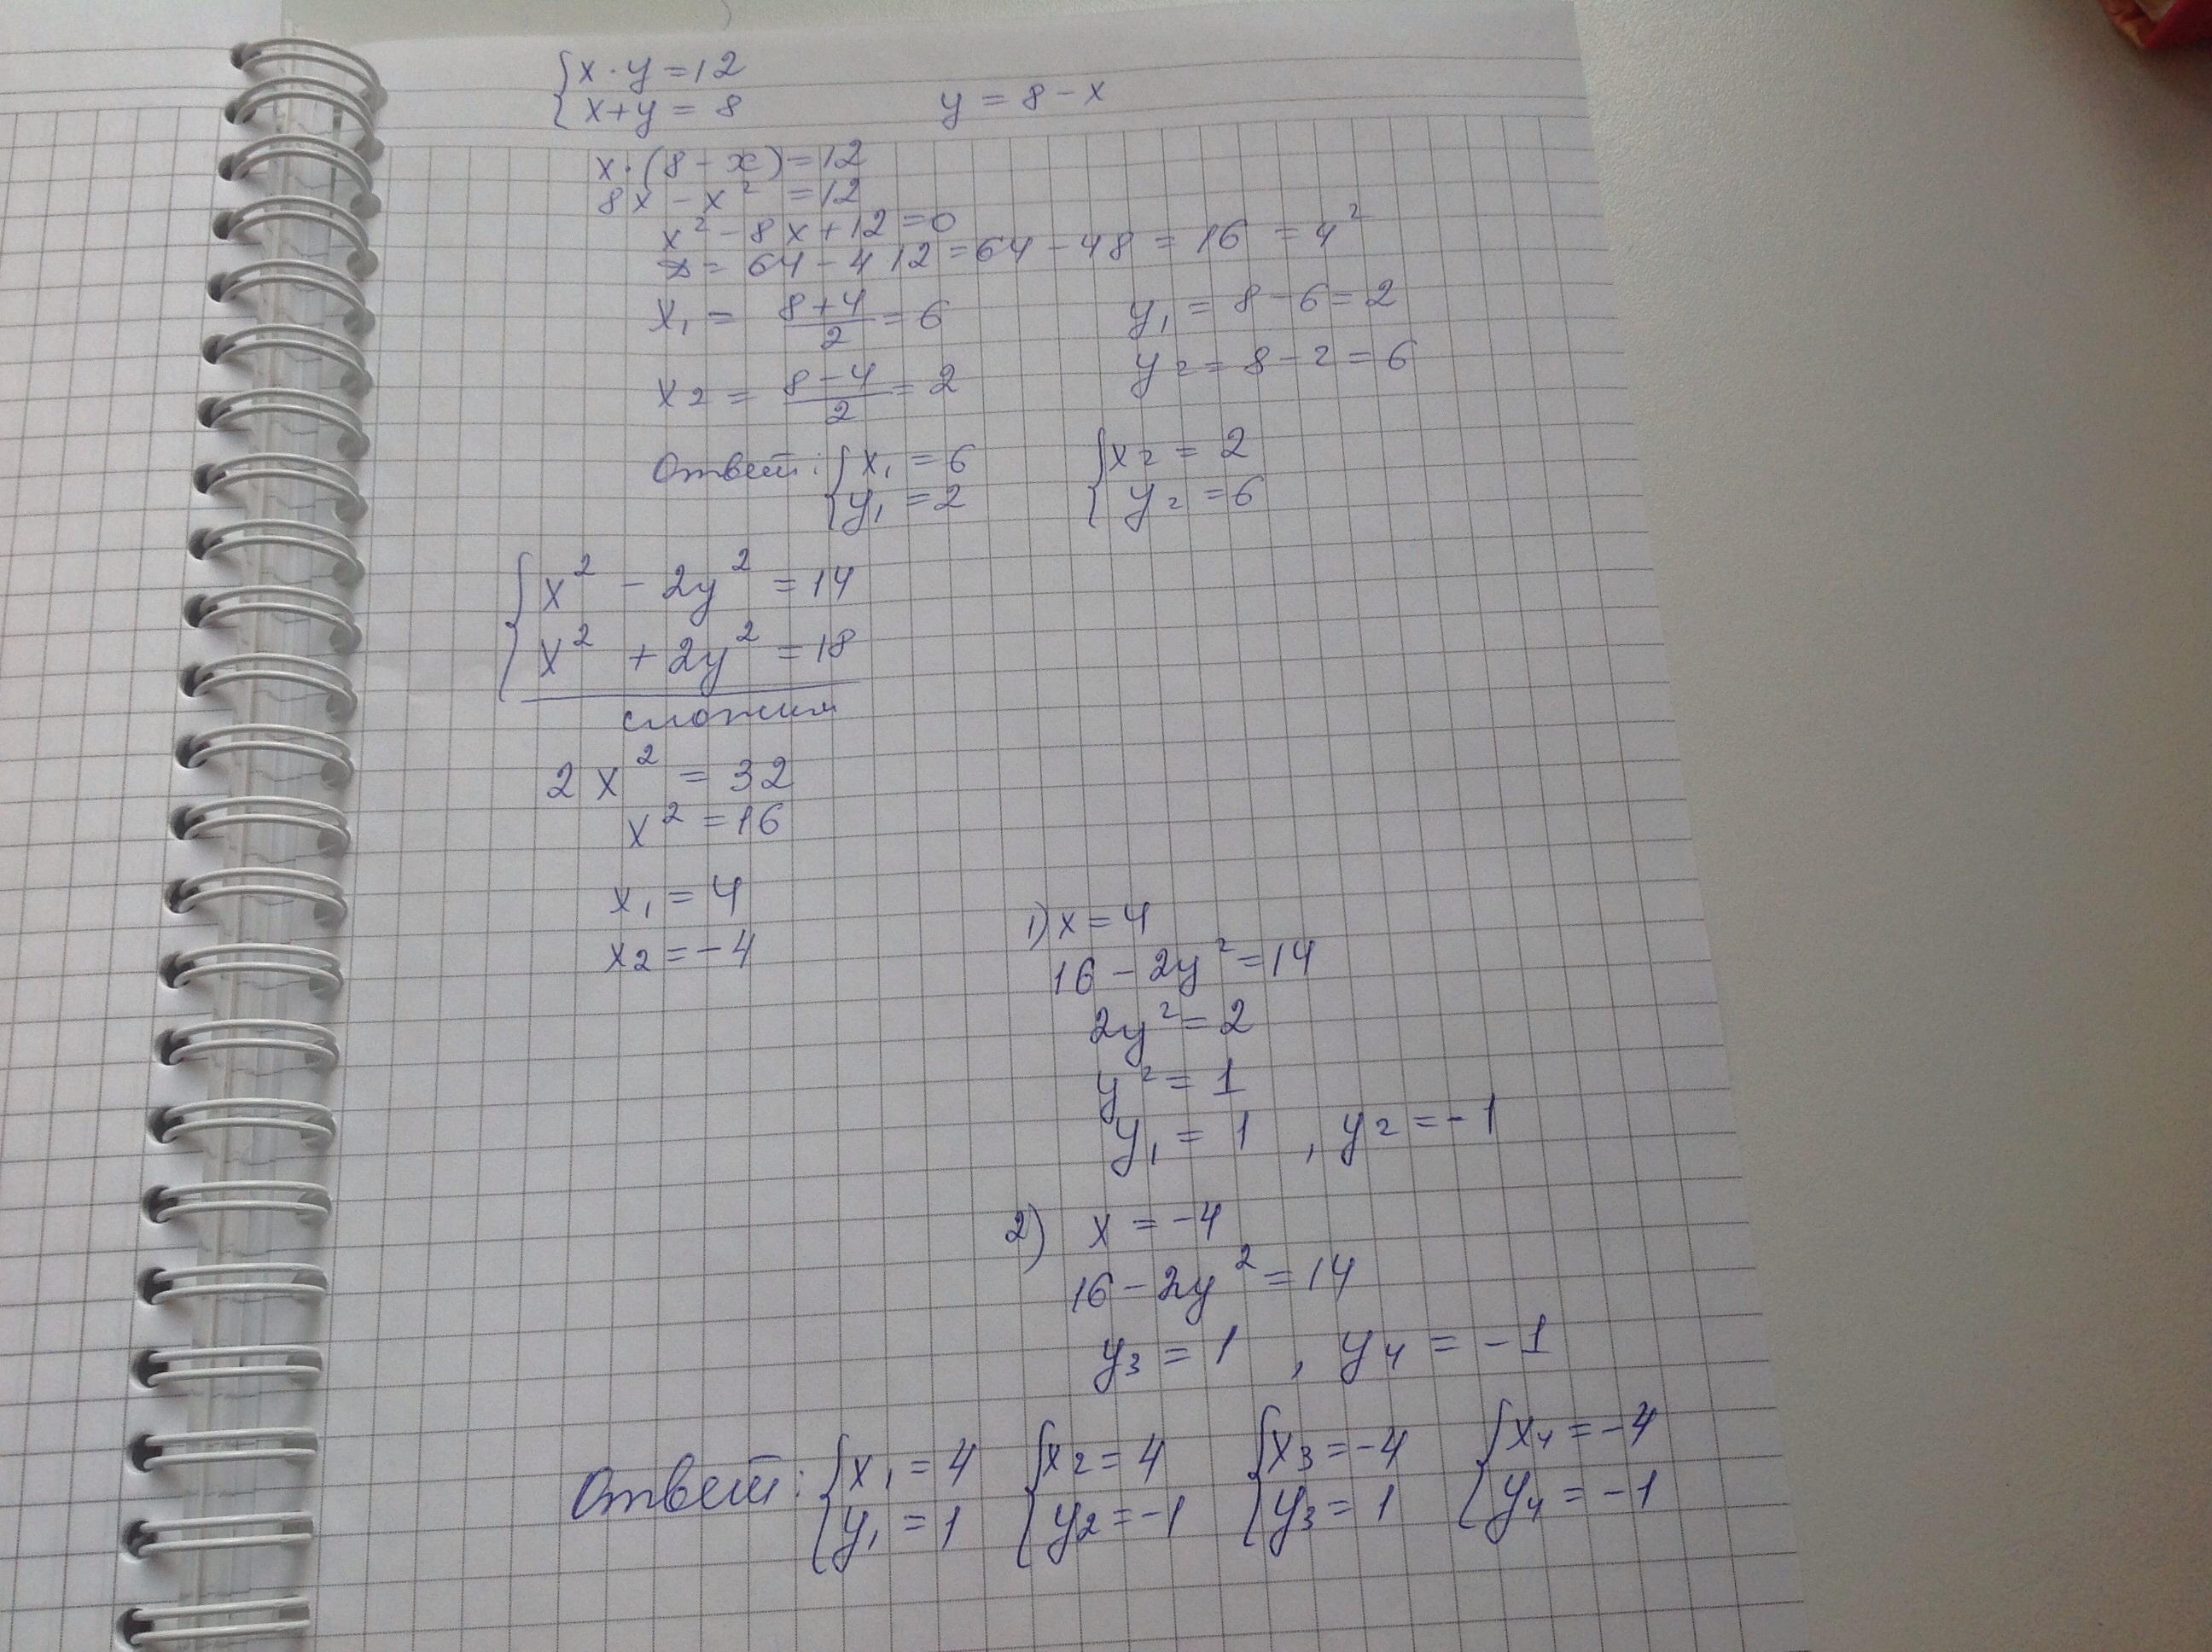 { x · y = 12
{ x + y = 8    y = 8 - x
x · (8 - x) = 12
8x - x² = 12
x² - 8x + 12 = 0
= 64 - 4 12 = 64 - 48 = 16 = 4²
x₁ = (8 + 4)/2 = 6    y₁ = 8 - 6 = 2
x₂ = (8 - 4)/2 = 2    y₂ = 8 - 2 = 6
Ответ: { x₁ = 6    { x₂ = 2
{ y₁ = 2    { y₂ = 6
{ x² - 2y² = 14
{ x² + 2y² = 18
сложим
2x² = 32
x² = 16
x₁ = 4
x₂ = -4
1) x = 4
16 - 2y² = 14
2y² = 2
y² = 1
y₁ = 1 , y₂ = -1
2) x = -4
16 - 2y² = 14
y₃ = 1 , y₄ = -1
Ответ: { x₁ = 4    { x₂ = 4    { x₃ = -4    { x₄ = -4
{ y₁ = 1    { y₂ = -1    { y₃ = 1    { y₄ = -1